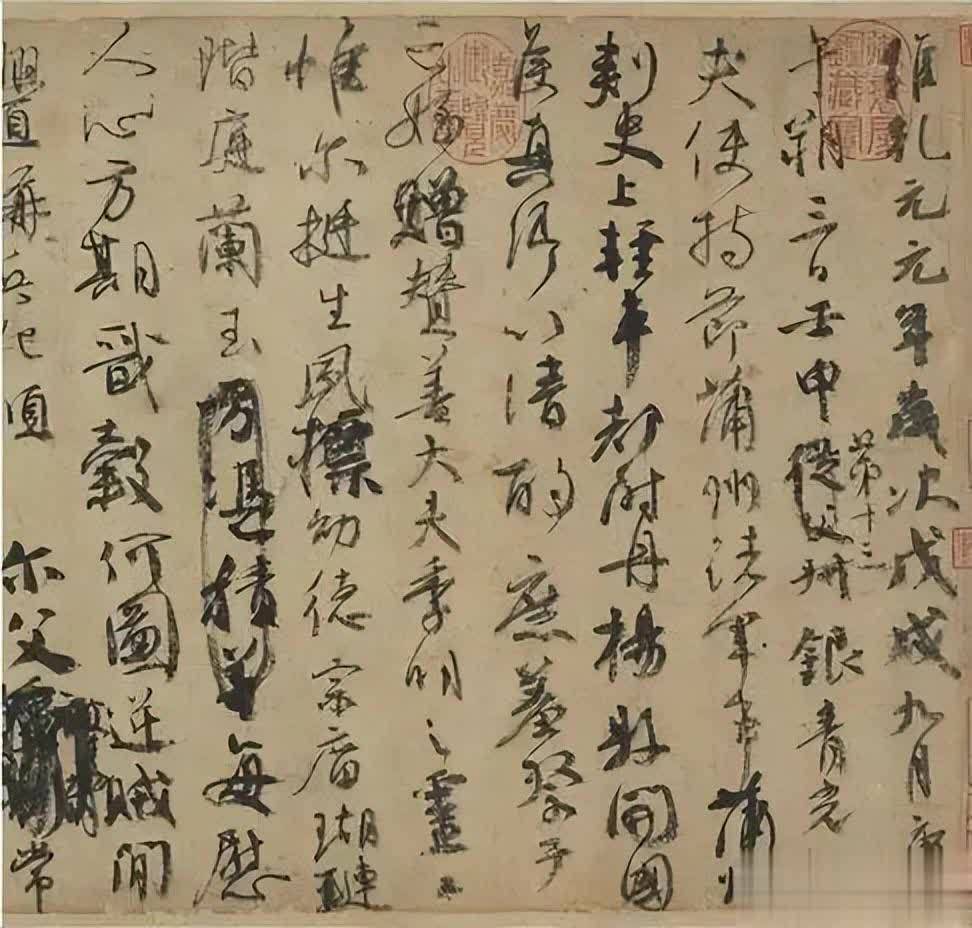 維乾元元年歲次戊戌九月庚
午朔三日壬申第十三叔銀青光
夫使持節蒲州諸軍事蒲州
刺史上輕車都尉丹楊縣開國
侯真卿以清酌庶羞祭于
亡姪贈贊善大夫季明之靈曰
惟爾挺生夙標幼德宗廟瑚璉
階庭蘭玉每慰
人心方期戩穀何圖逆賊間
釁稱兵犯順爾父常